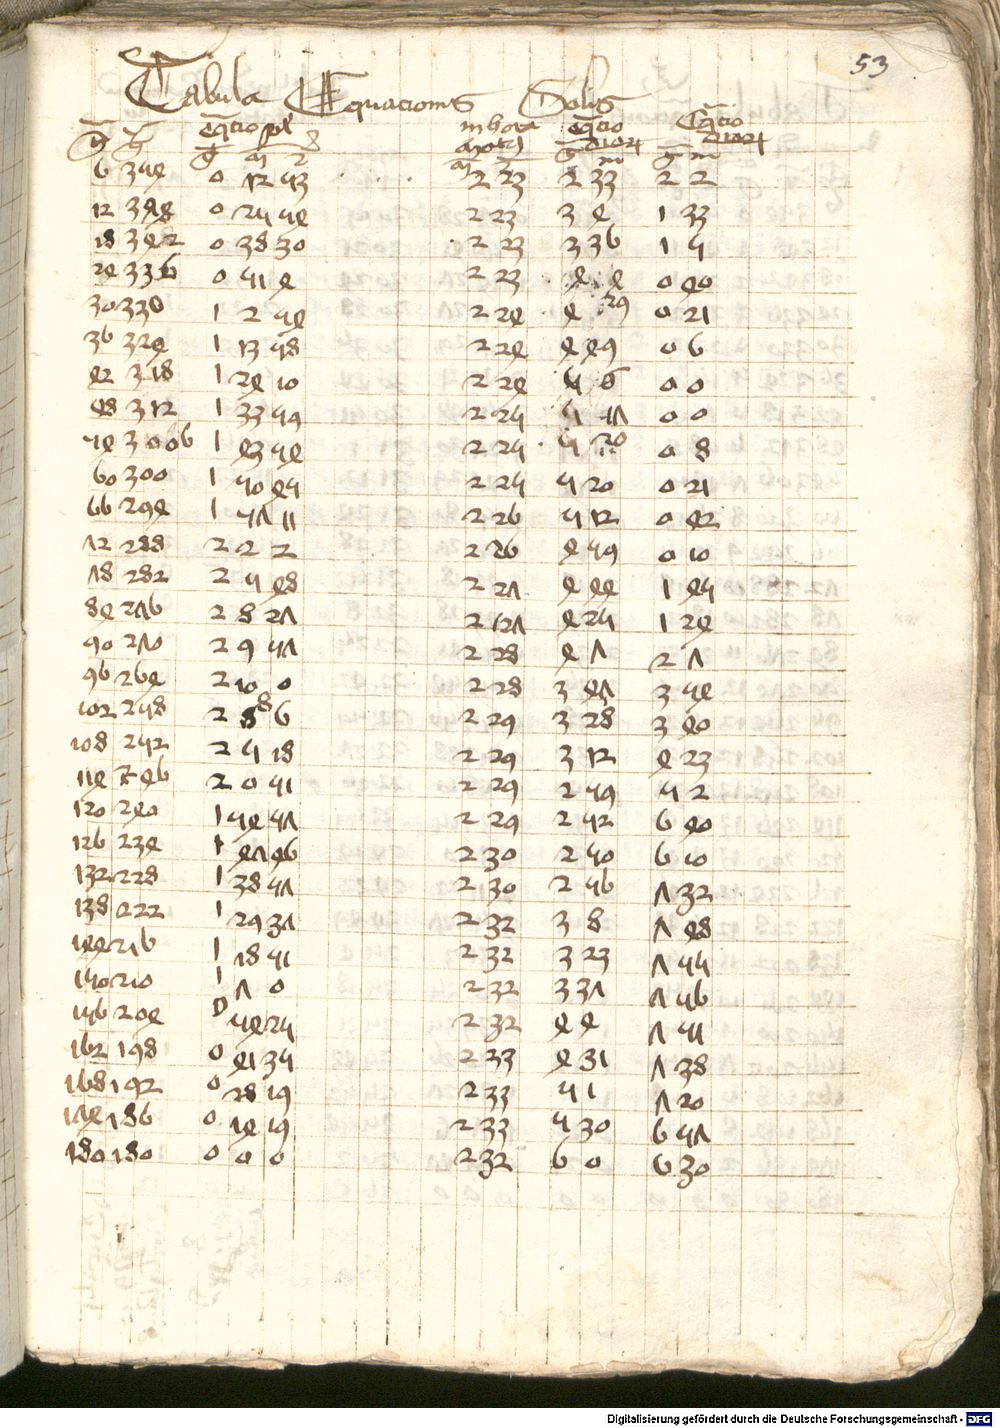 53
Tabula Equacionis Solis
in hora
6 354 0 12 53 2 23 2 33 2 2
12 348 0 25 54 2 23 3 4 1 33
18 342 0 38 30 2 23 3 36 1 5
24 336 0 51 4 2 23 4 4 0 40
30 330 1 2 54 2 24 4 29 0 21
36 324 1 13 58 2 24 4 49 0 6
42 318 1 24 10 2 24 5 6 0 0
48 312 1 33 59 2 25 5 17 0 0
54 3006 1 43 54 2 25 5 20 0 8
60 300 1 50 45 2 25 5 20 0 21
66 294 1 57 11 2 26 5 12 0 42
72 288 2 2 2 2 26 4 59 0 10
78 282 2 5 48 2 27 4 44 1 45
84 276 2 8 27 2 27 4 25 1 24
90 270 2 9 57 2 28 4 7 2 7
96 264 2 10 0 2 28 3 47 3 54
102 258 2 8 6 2 29 3 28 3 40
108 252 2 5 18 2 29 3 12 4 23
114 246 2 0 51 2 29 2 59 5 2
120 240 1 54 57 2 29 2 52 6 40
126 234 1 47 46 2 30 2 50 6 10
132 228 1 38 57 2 30 2 56 7 32
138 222 1 29 37 2 32 3 8 7 48
144 216 1 18 51 2 32 3 23 7 55
150 210 1 7 0 2 32 3 37 7 56
156 204 0 54 25 2 32 4 4 7 51
162 198 0 41 35 2 33 4 31 7 38
168 192 0 28 19 2 33 5 1 7 20
174 186 0 14 19 2 33 5 30 6 57
180 180 0 0 0 2 32 6 0 6 30
Digitalisierung gefördert durch die Deutsche Forschungsgemeinschaft - DFG